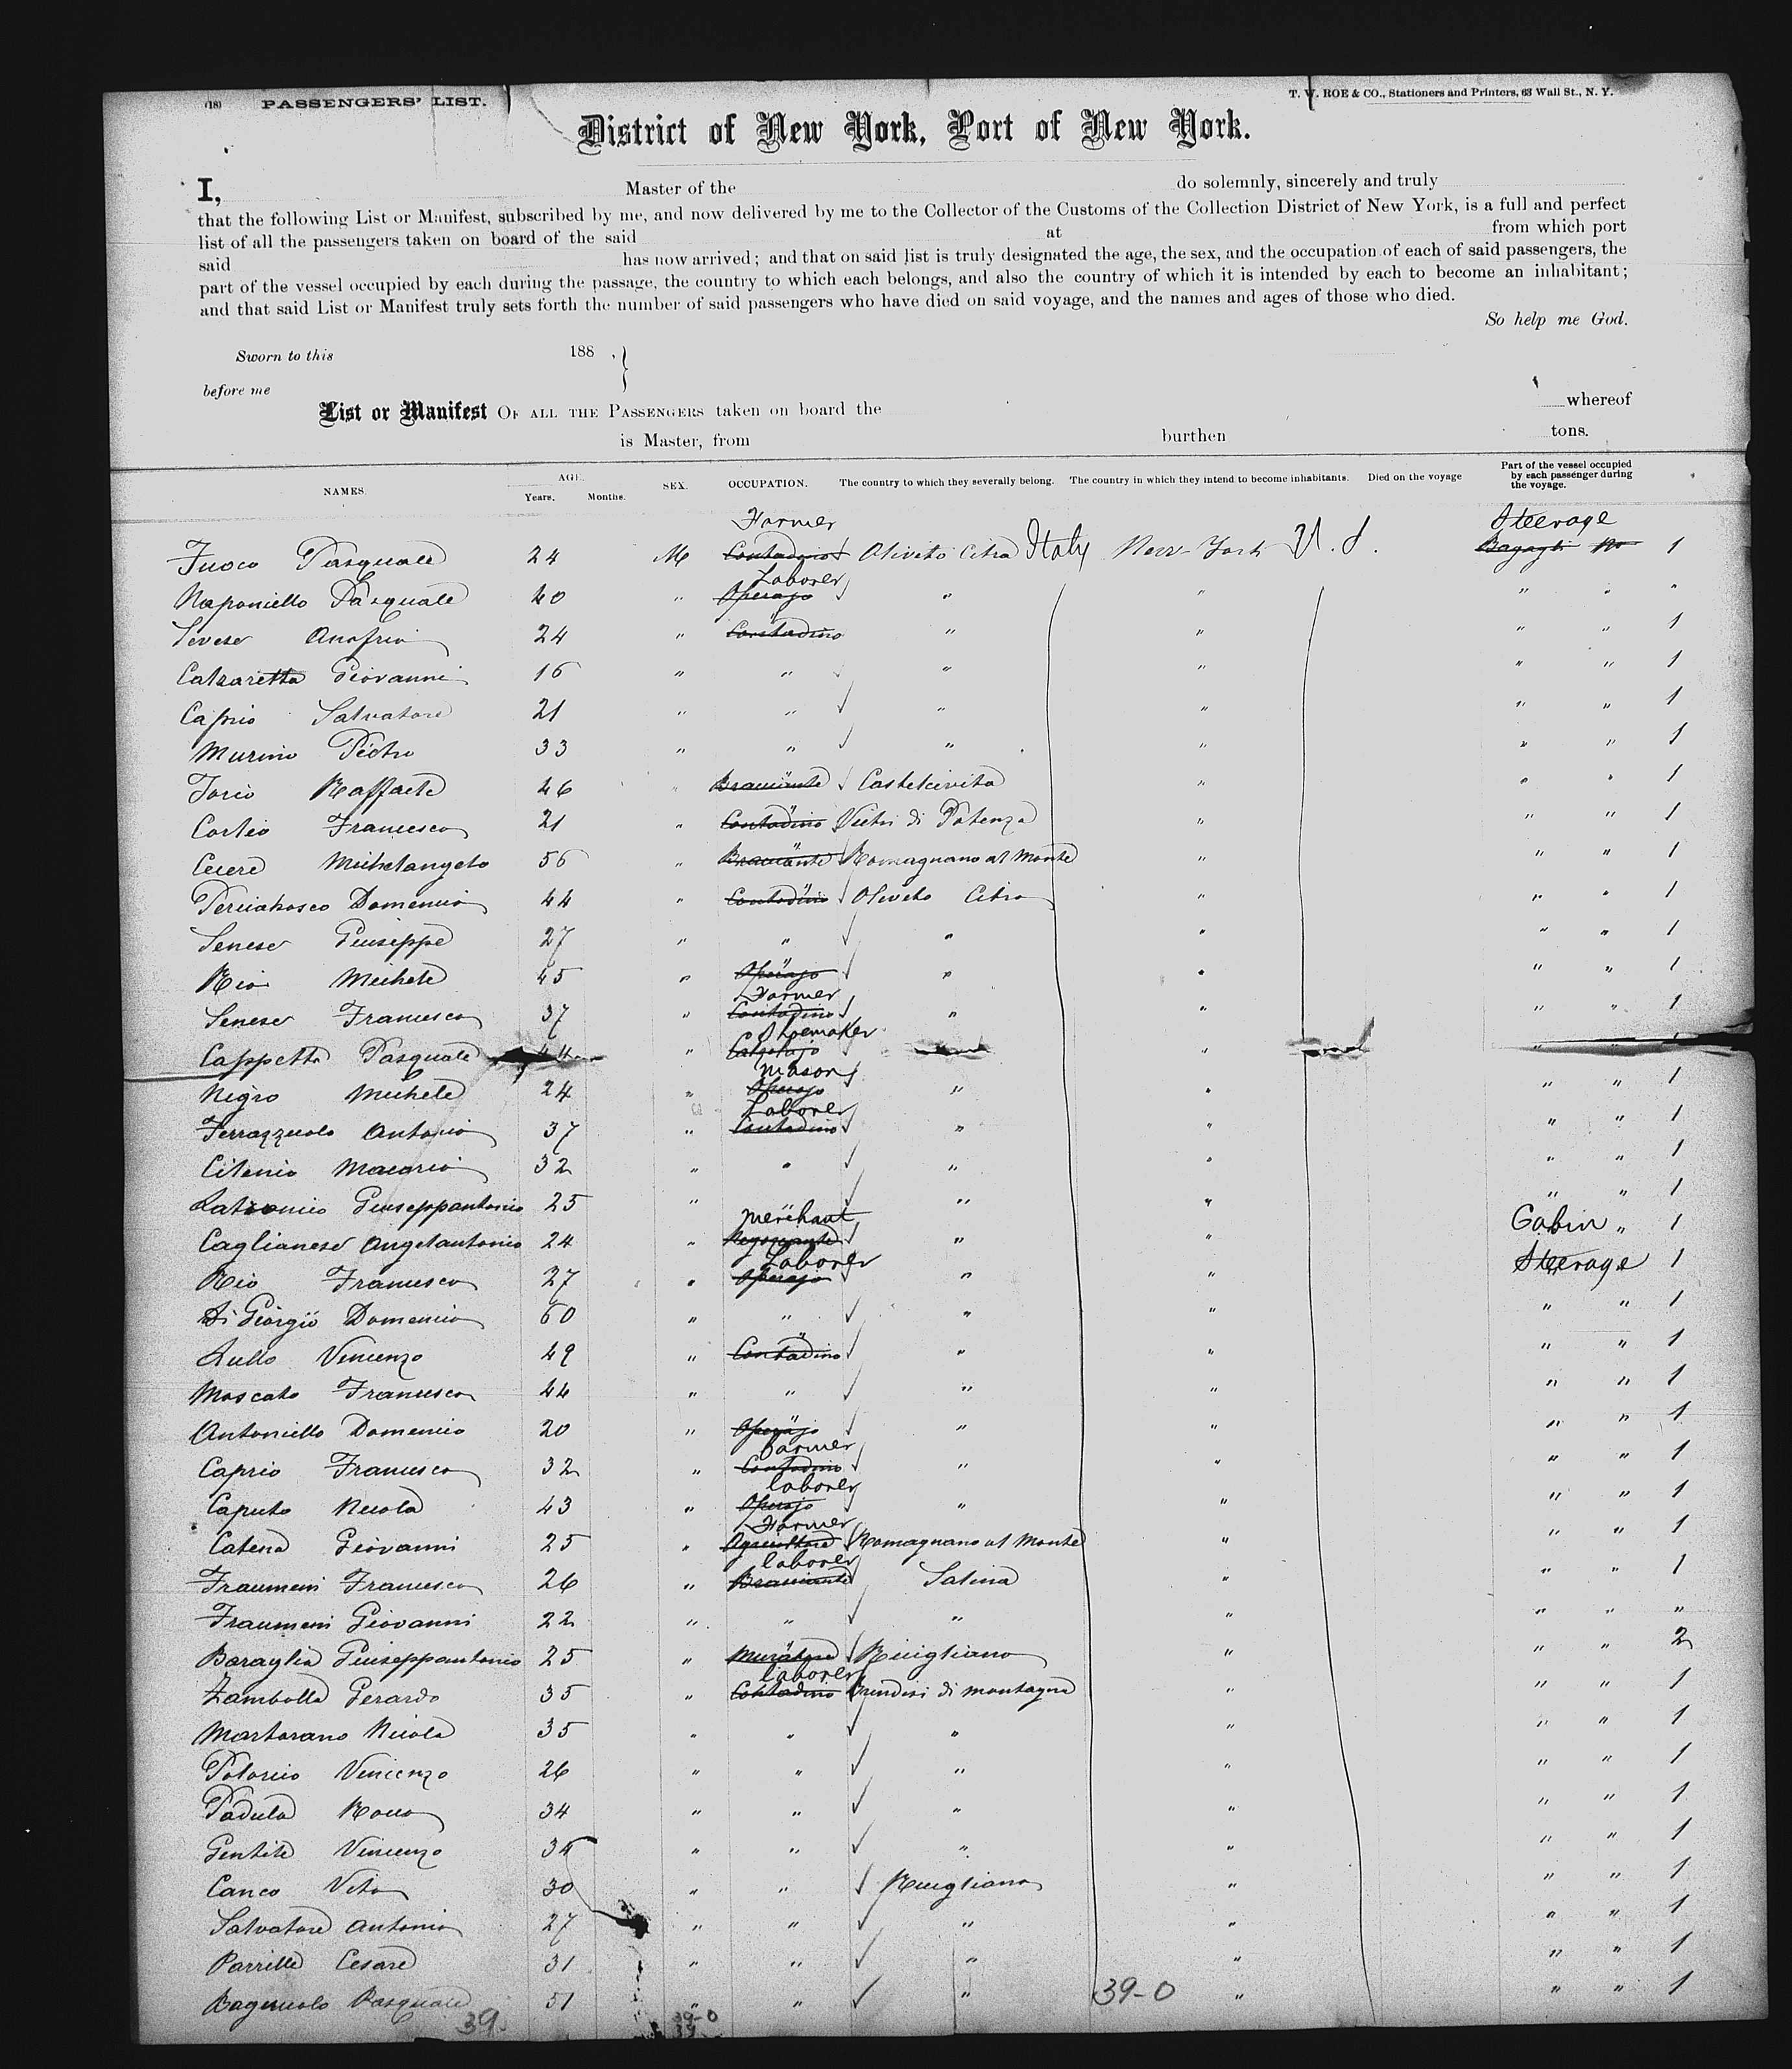 (18) PASSENGERS' LIST. T. W. ROE & CO., Stationers and Printers, 63 Wall St., N. Y.
District of New York, Port of New York.
I, Master of the do solemnly, sincerely and truly
that the following List or Manifest, subscribed by me, and now delivered by me to the Collector of the Customs of the Collection District of New York, is a full and perfect
list of all the passengers taken on board of the said at from which port
said has now arrived; and that on said list is truly designated the age, the sex, and the occupation of each of said passengers, the
part of the vessel occupied by each during the passage, the country to which each belongs, and also the country of which it is intended by each to become an inhabitant;
and that said List or Manifest truly sets forth the number of said passengers who have died on said voyage, and the names and ages of those who died.
So help me God.
Sworn to this 188 ,
before me
List or Manifest OF ALL THE PASSENGERS taken on board the whereof
is Master, from burthen tons.
NAMES. AGE. Years. Months. SEX. OCCUPATION. The country to which they severally belong. The country in which they intend to become inhabitants. Died on the voyage Part of the vessel occupied by each passenger during the voyage.
Farmer Steerage
Fuoco Pasquale 24 M Contadino Oliveto Citra Italy New-York U.S. Bagagli No 1
Laborer
Naponiello Pasquale 40 " Operajo " " " " "
Senese Onofrio 24 " Contadino " " " " 1
Calzaretta Giovanni 16 " " " " " " 1
Caprio Salvatore 21 " " " " " " 1
Murino Pietro 33 " " " " " " 1
Iorio Raffaele 46 " Bracciante Castelcivita " " " 1
Francesco 21 " Contadino Vietri di Potenza " " " 1
Cecere Michelangelo 56 " Bracciante Romagnano al Monte " " " 1
Domenico 44 " Contadino Oliveto Citra " " " 1
Senese Giuseppe 27 " " " " " " 1
Rio Michele 45 " Operajo " " " " 1
Farmer
Senese Francesco 37 " Contadino " " " " 1
Shoemaker
Cappetta Pasquale 44 " Calzolajo " " "
Mason
Nigro Michele 24 " Operajo " " " " 1
Laborer
Ferrazzuolo Antonio 37 " Contadino " " " " 1
Citenio Macario 32 " " " " " " 1
Giuseppantonio 25 " " " " " 1
Merchant
Caglianese Angelantonio 24 " Negoziante " " Cabin " 1
Laborer
Rio Francesco 27 " Operajo " " Steerage 1
Di Giorgio Domenico 60 " " " " " " 1
Lullo Vincenzo 49 " Contadino " " " " 1
Moscato Francesco 44 " " " " " " 1
Antoniello Domenico 20 " Operajo " " " " 1
Farmer
Caprio Francesco 32 " Contadino " " " " 1
laborer
Caputo Nicola 43 " Operajo " " " " 1
Farmer
Catena Giovanni 25 " Agricoltore Romagnano al Monte " " " 1
laborer
Fraumeni Francesco 26 " Bracciante Salina " " " 1
Fraumeni Giovanni 22 " " " " " " "
Baraglia Giuseppantonio 25 " Muratore Ricigliano " " " 2
laborer
Zambella Gerardo 35 " Contadino Brindisi di montagna " " " 1
Martorano Nicola 35 " " " " " " 1
Vincenzo 26 " " " " " " 1
Padula Rocco 34 " " " " " " 1
Gentile Vincenzo 34 " " " " " " 1
Canco Vito 30 " " Ricigliano " " " 1
Salvatore Antonio 27 " " " " " " 1
Parrille Cesare 31 " " " " " " 1
Pasquale 51 " " " 39-0 " " " 1
39. 39-0